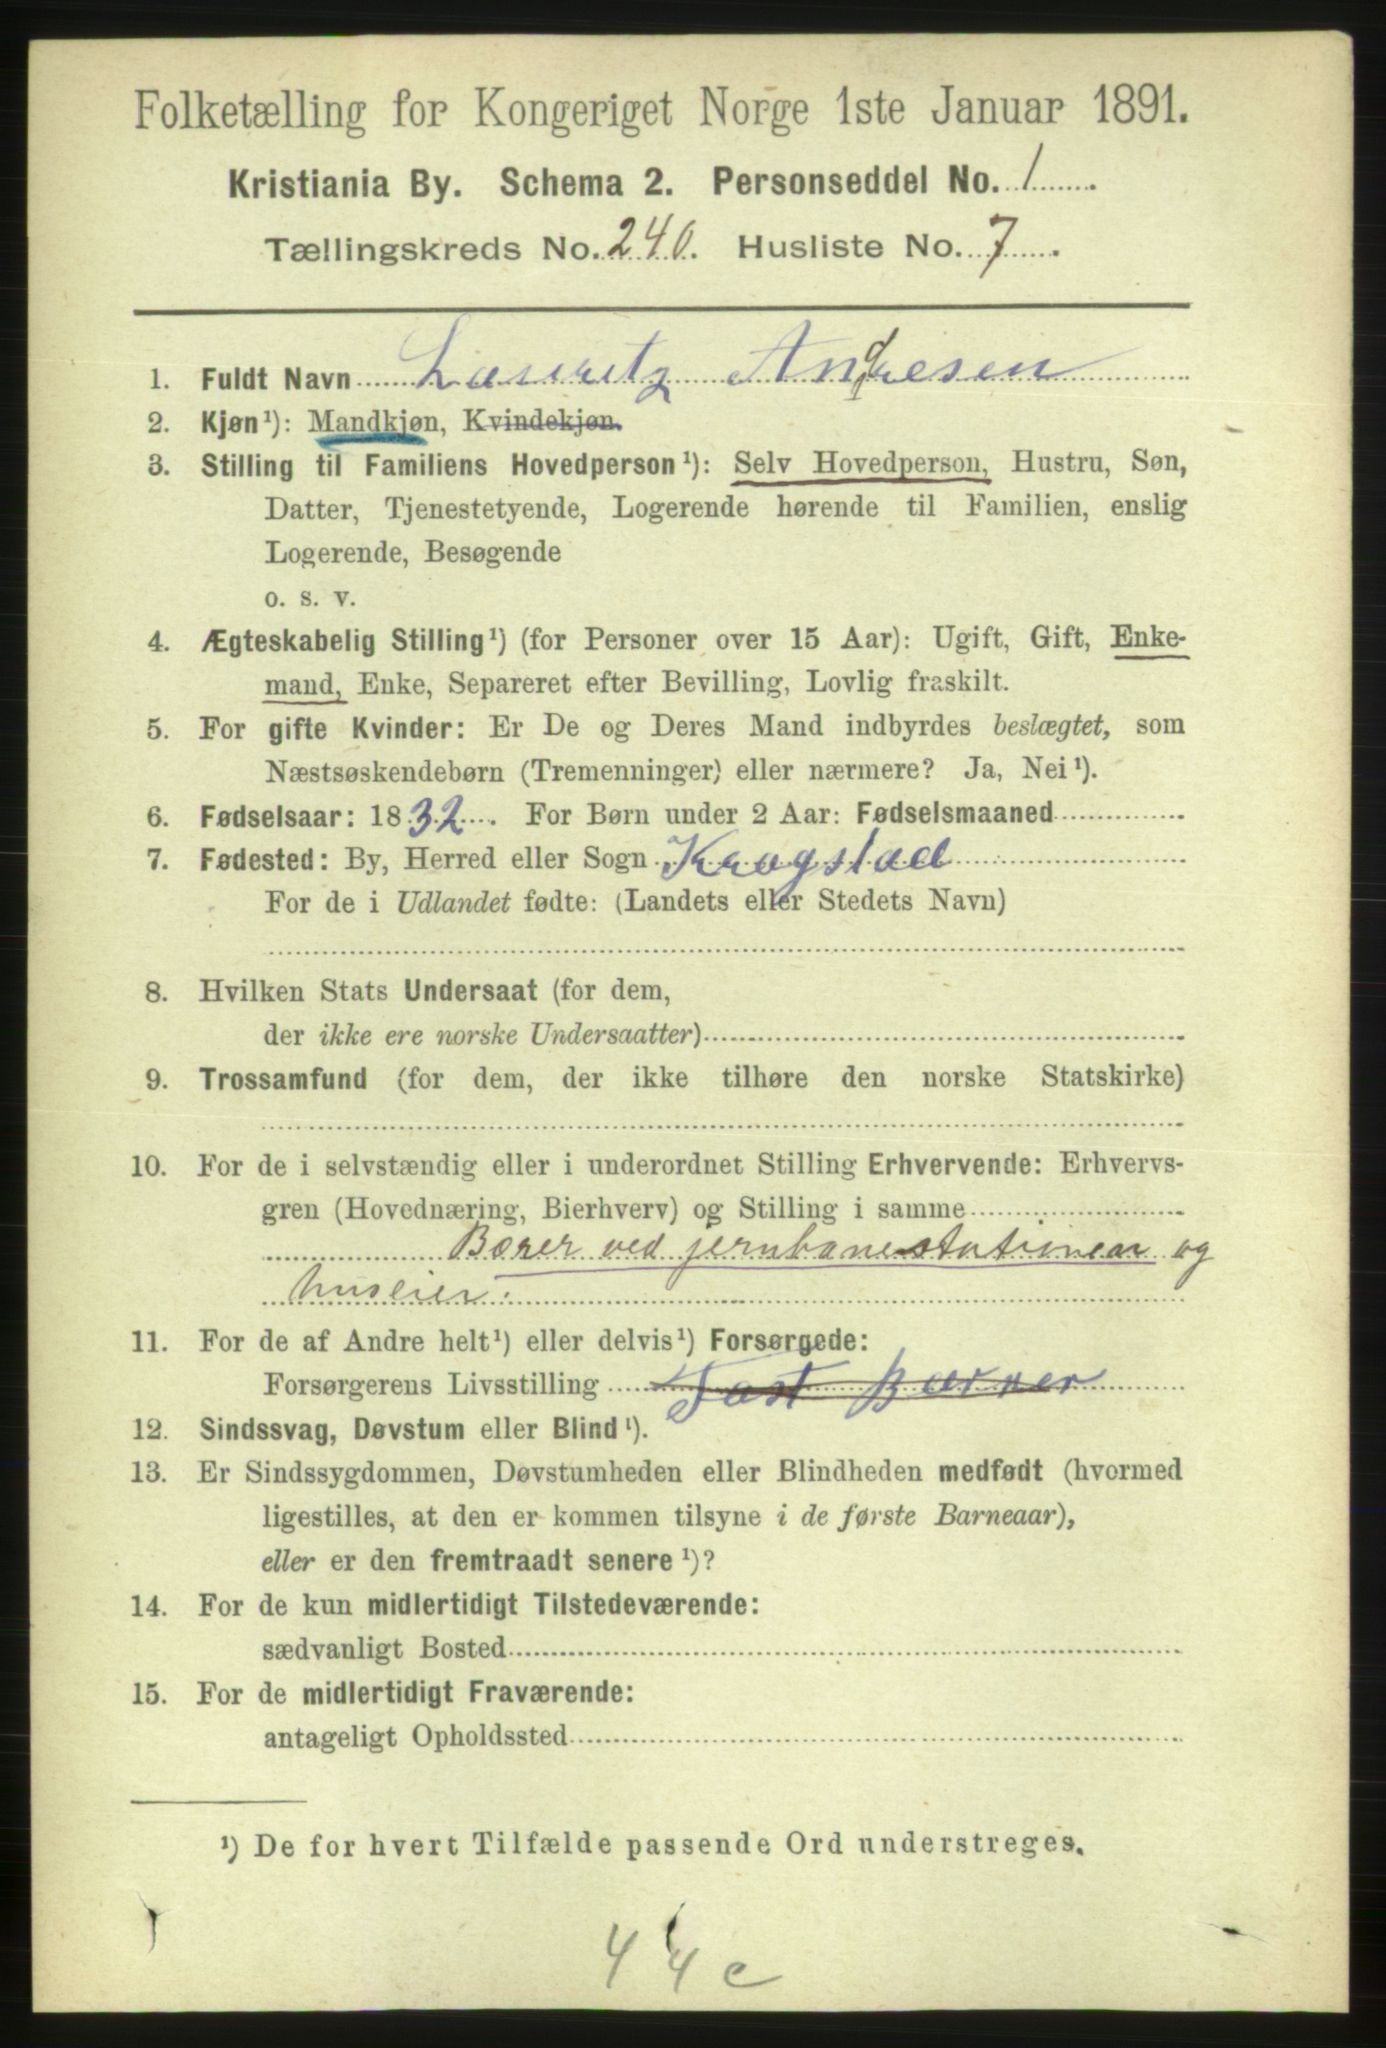 Folketælling for Kongeriget Norge 1ste Januar 1891.
Kristiania By. Schema 2. Personseddel No. 1
Tællingskreds No. 240. Husliste No. 7
1. Fuldt Navn Lauritz Andresen
2. Kjøn¹): Mandkjøn, Kvindekjøn.
3. Stilling til Familiens Hovedperson¹): Selv Hovedperson, Hustru, Søn,
Datter, Tjenestetyende, Logerende hørende til Familien, enslig
Logerende, Besøgende
o. s. v.
4. Ægteskabelig Stilling¹) (for Personer over 15 Aar): Ugift, Gift, Enke-
mand, Enke, Separeret efter Bevilling, Lovlig fraskilt.
5. For gifte Kvinder: Er De og Deres Mand indbyrdes beslægtet, som
Næstsøskendebørn (Tremenninger) eller nærmere? Ja, Nei¹).
6. Fødselsaar: 1832. For Børn under 2 Aar: Fødselsmaaned
7. Fødested: By, Herred eller Sogn Kragstad
For de i Udlandet fødte: (Landets eller Stedets Navn)
8. Hvilken Stats Undersaat (for dem,
der ikke ere norske Undersaatter)
9. Trossamfund (for dem, der ikke tilhøre den norske Statskirke)
10. For de i selvstændig eller i underordnet Stilling Erhvervende: Erhvervs-
gren (Hovednæring, Bierhverv) og Stilling i samme
Bærer ved jernbanestationen og
huseier.
11. For de af Andre helt¹) eller delvis¹) Forsørgede:
Forsørgerens Livsstilling Fast Bærer
12. Sindssvag, Døvstum eller Blind¹).
13. Er Sindssygdommen, Døvstumheden eller Blindheden medfødt (hvormed
ligestilles, at den er kommen tilsyne i de første Barneaar),
eller er den fremtraadt senere¹)?
14. For de kun midlertidigt Tilstedeværende:
sædvanligt Bosted
15. For de midlertidigt Fraværende:
antageligt Opholdssted
¹) De for hvert Tilfælde passende Ord understreges.
44c